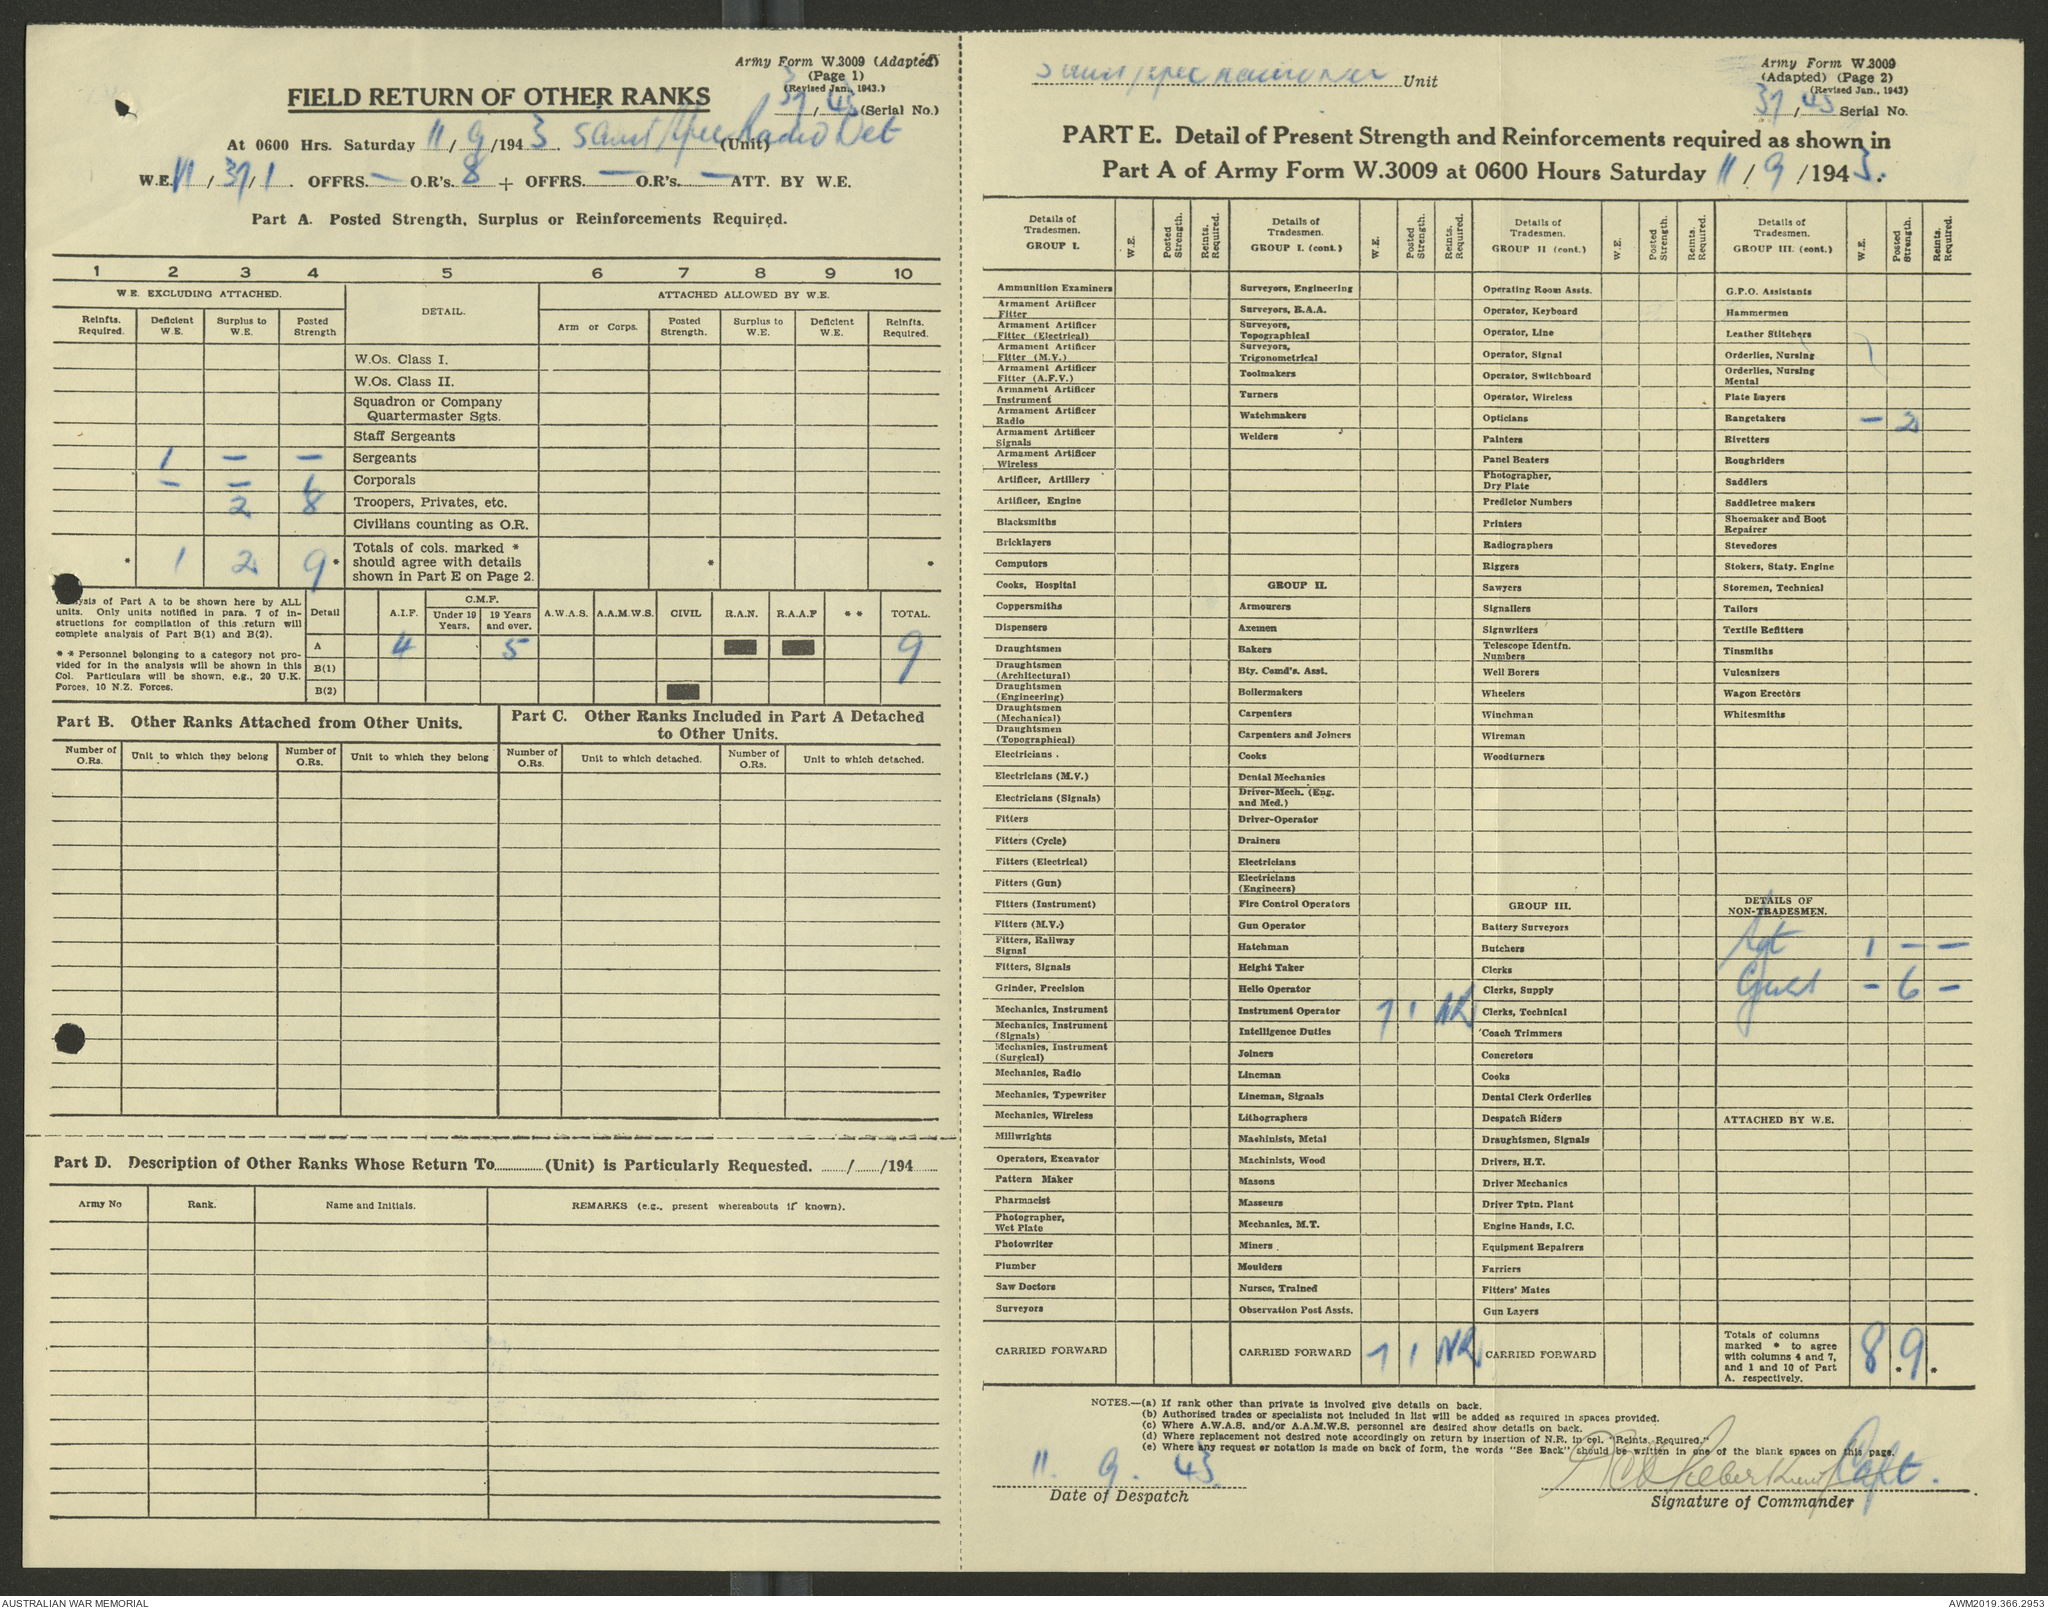 Army Form W.3009 (Adapted)
(Page 1)
(Revised Jan., 1943.)
37/43 (Serial No.)
FIELD RETURN OF OTHER RANKS
At 0600 Hrs. Saturday 11/9/1943. Radio Det (Unit)
W.E. VI/391/1. OFFRS. — O.R's. 8 + OFFRS. — O.R's. — ATT. BY W.E.
Part A. Posted Strength, Surplus or Reinforcements Required.
1 2 3 4 5 6 7 8 9 10
W.E. EXCLUDING ATTACHED. DETAIL. ATTACHED ALLOWED BY W.E.
Reinfts. Required. Deficient W.E. Surplus to W.E. Posted Strength Arm or Corps. Posted Strength. Surplus to W.E. Deficient W.E. Reinfts. Required.
W.Os. Class I.
W.Os. Class II.
Squadron or Company Quartermaster Sgts.
Staff Sergeants
1 — — Sergeants
— — 1 Corporals
2 8 Troopers, Privates, etc.
Civilians counting as O.R.
* 1 2 9 * Totals of cols. marked * should agree with details shown in Part E on Page 2. * *
Analysis of Part A to be shown here by ALL units. Only units notified in para. 7 of instructions for compilation of this return will complete analysis of Part B(1) and B(2).
* * Personnel belonging to a category not provided for in the analysis will be shown in this Col. Particulars will be shown, e.g., 20 U.K. Forces, 10 N.Z. Forces.
Detail A.I.F. C.M.F. Under 19 Years. 19 Years and over. A.W.A.S. A.A.M.W.S. CIVIL R.A.N. R.A.A.F * * TOTAL.
A 4 5 9
B(1)
B(2)
Part B. Other Ranks Attached from Other Units.
Number of O.Rs. Unit to which they belong Number of O.Rs. Unit to which they belong
Part C. Other Ranks Included in Part A Detached to Other Units.
Number of O.Rs. Unit to which detached. Number of O.Rs. Unit to which detached.
Part D. Description of Other Ranks Whose Return To............(Unit) is Particularly Requested. ....../....../194......
Army No Rank. Name and Initials. REMARKS (e.g., present whereabouts if known).
Unit
Army Form W.3009
(Adapted) (Page 2)
(Revised Jan., 1943)
37/43 Serial No.
PART E. Detail of Present Strength and Reinforcements required as shown in
Part A of Army Form W.3009 at 0600 Hours Saturday 11/9/1943.
Details of Tradesmen. GROUP I. W.E. Posted Strength. Reints. Required.
Ammunition Examiners
Armament Artificer Fitter
Armament Artificer Fitter (Electrical)
Armament Artificer Fitter (M.V.)
Armament Artificer Fitter (A.F.V.)
Armament Artificer Instrument
Armament Artificer Radio
Armament Artificer Signals
Armament Artificer Wireless
Artificer, Artillery
Artificer, Engine
Blacksmiths
Bricklayers
Computors
Cooks, Hospital
Coppersmiths
Dispensers
Draughtsmen
Draughtsmen (Architectural)
Draughtsmen (Engineering)
Draughtsmen (Mechanical)
Draughtsmen (Topographical)
Electricians .
Electricians (M.V.)
Electricians (Signals)
Fitters
Fitters (Cycle)
Fitters (Electrical)
Fitters (Gun)
Fitters (Instrument)
Fitters (M.V.)
Fitters, Railway Signal
Fitters, Signals
Grinder, Precision
Mechanics, Instrument
Mechanics, Instrument (Signals)
Mechanics, Instrument (Surgical)
Mechanics, Radio
Mechanics, Typewriter
Mechanics, Wireless
Millwrights
Operators, Excavator
Pattern Maker
Pharmacist
Photographer, Wet Plate
Photowriter
Plumber
Saw Doctors
Surveyors
CARRIED FORWARD
Details of Tradesmen. GROUP I. (cont.) W.E. Posted Strength. Reints. Required.
Surveyors, Engineering
Surveyors, R.A.A.
Surveyors, Topographical
Surveyors, Trigonometrical
Toolmakers
Turners
Watchmakers
Welders
GROUP II.
Armourers
Axemen
Bakers
Bty. Comd's. Asst.
Boilermakers
Carpenters
Carpenters and Joiners
Cooks
Dental Mechanics
Driver-Mech. (Eng. and Med.)
Driver-Operator
Drainers
Electricians
Electricians (Engineers)
Fire Control Operators
Gun Operator
Hatchman
Height Taker
Helio Operator
Instrument Operator 7 1 NR
Intelligence Duties
Joiners
Lineman
Lineman, Signals
Lithographers
Machinists, Metal
Machinists, Wood
Masons
Masseurs
Mechanics, M.T.
Miners
Moulders
Nurses, Trained
Observation Post Assts.
CARRIED FORWARD 7 1 NR
Details of Tradesmen. GROUP II (cont.) W.E. Posted Strength. Reints. Required.
Operating Room Assts.
Operator, Keyboard
Operator, Line
Operator, Signal
Operator, Switchboard
Operator, Wireless
Opticians
Painters
Panel Beaters
Photographer, Dry Plate
Predictor Numbers
Printers
Radiographers
Riggers
Sawyers
Signallers
Signwriters
Telescope Identfn. Numbers
Well Borers
Wheelers
Winchman
Wireman
Woodturners
GROUP III.
Battery Surveyors
Butchers
Clerks
Clerks, Supply
Clerks, Technical
Coach Trimmers
Concretors
Cooks
Dental Clerk Orderlies
Despatch Riders
Draughtsmen, Signals
Drivers, H.T.
Driver Mechanics
Driver Tptn. Plant
Engine Hands, I.C.
Equipment Repairers
Farriers
Fitters' Mates
Gun Layers
CARRIED FORWARD
Details of Tradesmen. GROUP III. (cont.) W.E. Posted Strength. Reints. Required.
G.P.O. Assistants
Hammermen
Leather Stitchers
Orderlies, Nursing
Orderlies, Nursing Mental
Plate Layers
Rangetakers — 2
Rivetters
Roughriders
Saddlers
Saddletree makers
Shoemaker and Boot Repairer
Stevedores
Stokers, Staty. Engine
Storemen, Technical
Tailors
Textile Refitters
Tinsmiths
Vulcanizers
Wagon Erectors
Whitesmiths
DETAILS OF NON-TRADESMEN.
Sgt 1 — —
— 6 —
ATTACHED BY W.E.
Totals of columns marked * to agree with columns 4 and 7, and 1 and 10 of Part A. respectively. 8 * 9 *
NOTES.—(a) If rank other than private is involved give details on back.
(b) Authorised trades or specialists not included in list will be added as required in spaces provided.
(c) Where A.W.A.S. and/or A.A.M.W.S. personnel are desired show details on back.
(d) Where replacement not desired note accordingly on return by insertion of N.R. in col. "Reints. Required."
(e) Where any request or notation is made on back of form, the words "See Back" should be written in one of the blank spaces on this page.
11. 9. 43.
Date of Despatch
Capt.
Signature of Commander
AUSTRALIAN WAR MEMORIAL
AWM2019.366.2953